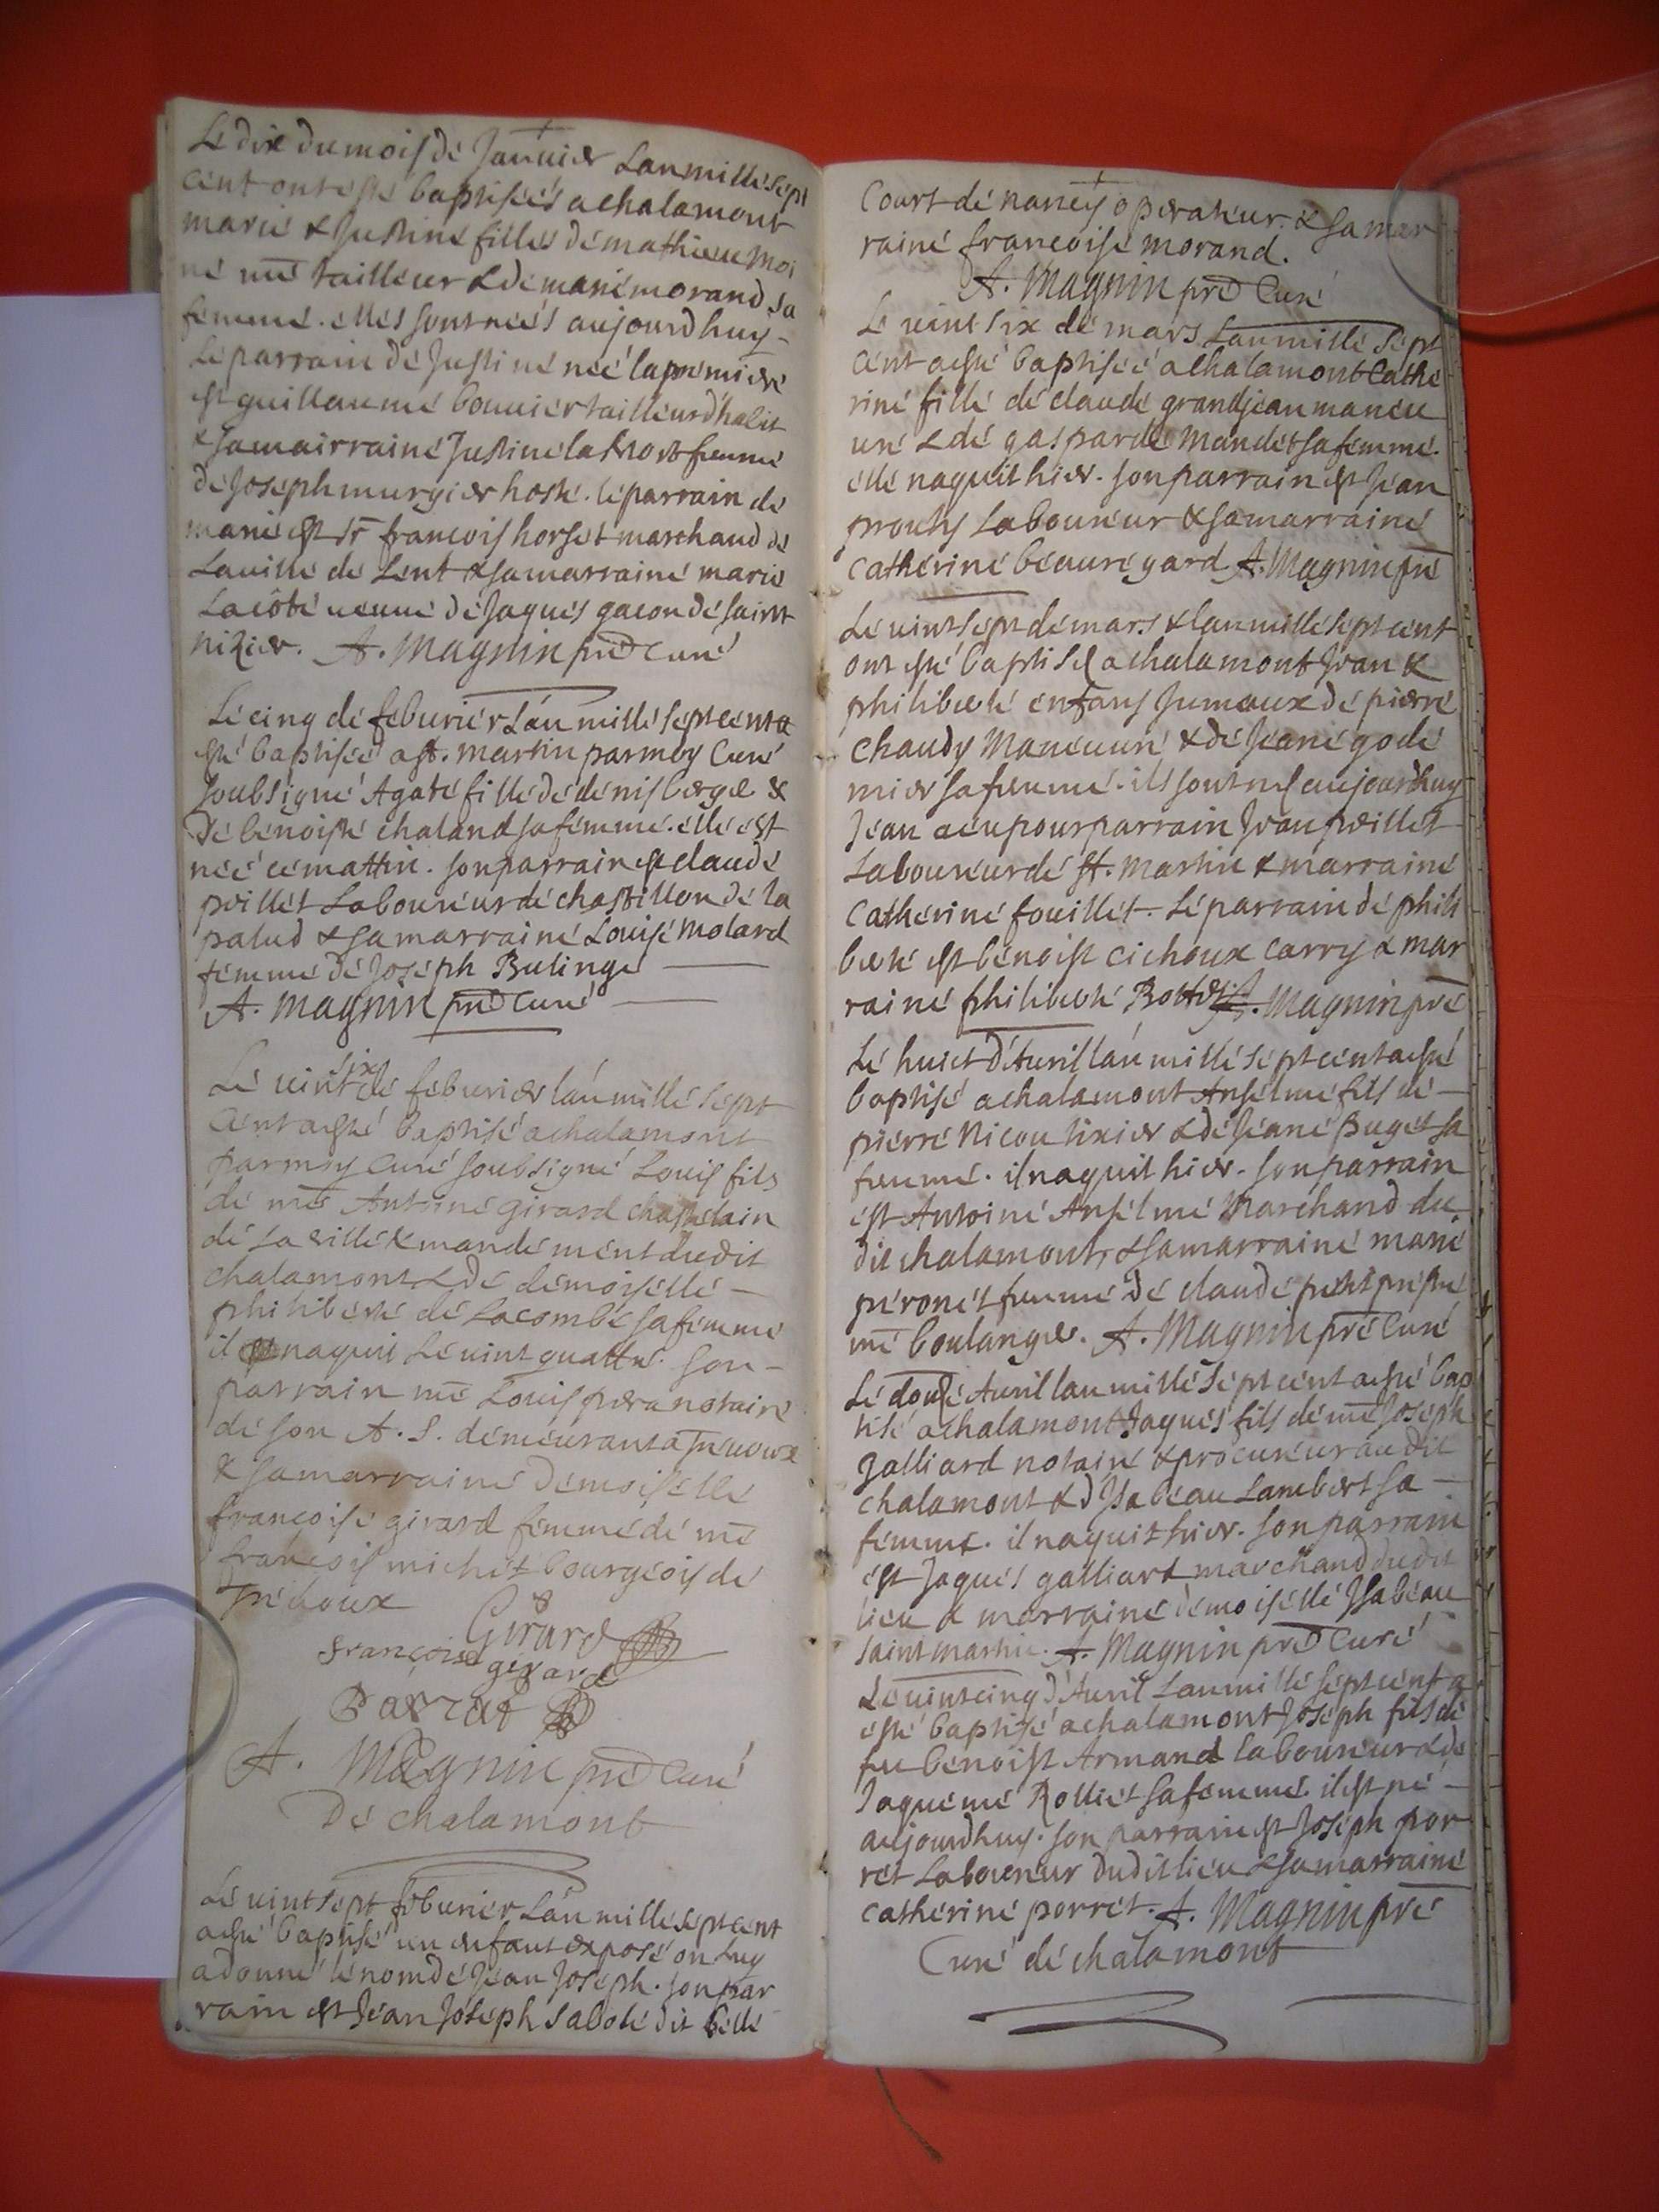 Le dix du mois de Januier Lan mille sept
cent ont esté baptiseés a chalamont
marie & Justine filles de mathieu Moi
ne me tailleur & de marie morand sa
femme. elles sont neés aujourdhuy -
Le parrain de Justine neé la premiere
est guillaume bouuier tailleur d'habit
& sa mairraine Justine femme
de Joseph murgier hoste. le parrain de
marie est sr francois horset marchand de
La uille de Lent & sa marraine marie
Lacôte ueuue de Jaques gacon de saint
nizier. A. Magnin pre Curé
Le cinq de feburier L'an mille sept cent a
esté baptiseé a st. martin par moy Curé
soubsigné Agate fille de denis berge &
de benoiste chaland sa femme. elle est
neé ce mattin. son parrain est claude
poillet Laboureur de chastillon de la
palud & sa marraine Louise Molard
femme de Joseph Bulinge
A. Magnin pre Curé
Le uint six de feburier l'an mille sept
cent a esté baptisé a chalamont
par moy Curé soubsigné Louis fils
de me Antoine girard chastelain
de La uille & mandement dudit
chalamont & de demoiselle -
philiberte de Lacombe sa femme
il naquit le uint quattre. son -
parrain me Louis notaire
de son A. S. demeurant a Treuoux
& sa marraine demoiselle
francoise girard femme de me
francois michet bourgeois de
Treuoux
Girard
françoise girard
A. Magnin pre Curé
De chalamont
Le uint sept feburier L'an mille sept cent
a esté baptisé un enfant exposé on luy
a donné le nom de Jean Joseph. son par
rain est Jean Joseph Sabolé dit belle
Court de nancy operateur & sa mar
raine francoise morand.
A. Magnin pre Curé
Le uint six de mars Lan mille sept
cent a esté baptiseé a chalamont Cathe
rine fille de claude grandjean maneu
ure & de gasparde Mandet sa femme.
elle naquit hier. son parrain est Jean
prouty Laboureur & sa marraine
catherine beauregard A. Magnin pre
Le uint sept de mars & lan mille sept cent
ont esté baptises a chalamont Jean &
philiberte enfans Jumeaux de pierre
chaudy Maneuure & de Jeane gode
mier sa femme. ils sont nes aujourdhuy
Jean a eu pour parrain Jean poillet
Laboureur de st. Martin & marraine
catherine fouillet. Le parrain de phili
berte est benoist cichoux carry & mar
raine philiberte A. Magnin pre
Le huict d'Auril l'an mille sept cent a esté
baptisé a chalamont Anselme fils de -
pierre Nicou tixier & de Jeane puget sa
femme. il naquit hier. son parrain
est Antoine Anselme Marchand du
dit chalamont & sa marraine marie
peronet femme de claude
me boulanger. A. Magnin pre Curé
Le douse Auril lan mille sept cent a esté bap
tisé a chalamont Jaques fils de me Joseph
galliard notaire & procureur audit
chalamont & d'Isabeau Lambert sa -
femme. il naquit hier. son parrain
est Jaques galliard marchand dudit
lieu & marraine demoiselle Isabeau
saint martin. A. Magnin pre Curé
Le uint cinq d'Auril Lan mille sept cent a
esté baptisé a chalamont Joseph fils de
feu benoist Armand laboureur & de
Jaqueme Rolliet sa femme. il est né -
aujourdhuy. son parrain est Joseph por
ret Laboureur dudit lieu & sa marraine
catherine porret. A. Magnin pre
Curé de chalamont